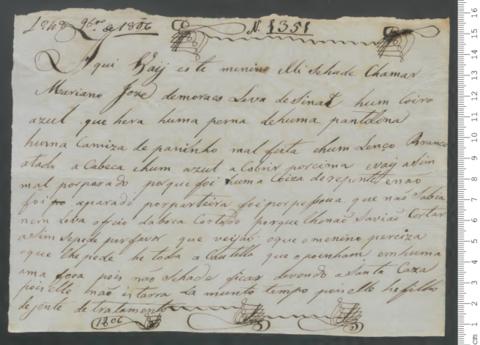 1806
N. 1351
Aqui Vaij este menino elli Sehade Chamar
Mariano Joze demoraes Leva desinal hum Coiro
azul que hera huma perna dehuma pantelona
huma Camiza de paninho mal feita ehum Lenço Branco
atado a Cabeca ehum azul a Cobrir por sima evaij asim
mal porparado porque foi huma Coiza de repente enão
foi aparado porparteira foi porpessoua que não Sabia
nem Leva ofcio daboca Cortado porque lhonão Savião Cortar
asim Sepede porfavor que vejão oque omenino perciza
eque lhepede he toda a Cautella que oponham em huma
ama fora pois não Sehade ficar devendo a Santa Caza
pois elle não estara La munto tempo pois elle he filho
de jente de tratamento
1806
cm 1 2 3 4 5 6 7 8 9 10 11 12 13 14 15 16